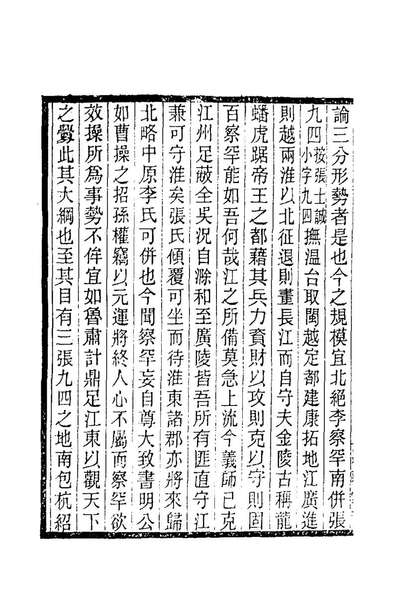 論三分形勢者是也今之規模宜北絶李察罕南併張
九四按張士誠小字九四撫溫台取閩越定都建康拓地江廣進
則越兩淮以北征退則畫長江而自守夫金陵古稱龍
蟠虎踞帝王之都藉其兵力資財以攻則克以守則固
百察罕能如吾何哉江之所備莫急上流今義師已克
江州足蔽全吳況自滁和至廣陵皆吾所有匪直守江
兼可守淮矣張氏傾覆可坐而待淮東諸郡亦將來歸
北略中原李氏可併也今聞察罕妄自尊大致書明公
如曹操之招孫權竊以元運將終人心不屬而察罕欲
效操所爲事勢不侔宜如魯肅計鼎足江東以觀天下
之釁此其大綱也至其目有三張九四之地南包杭紹